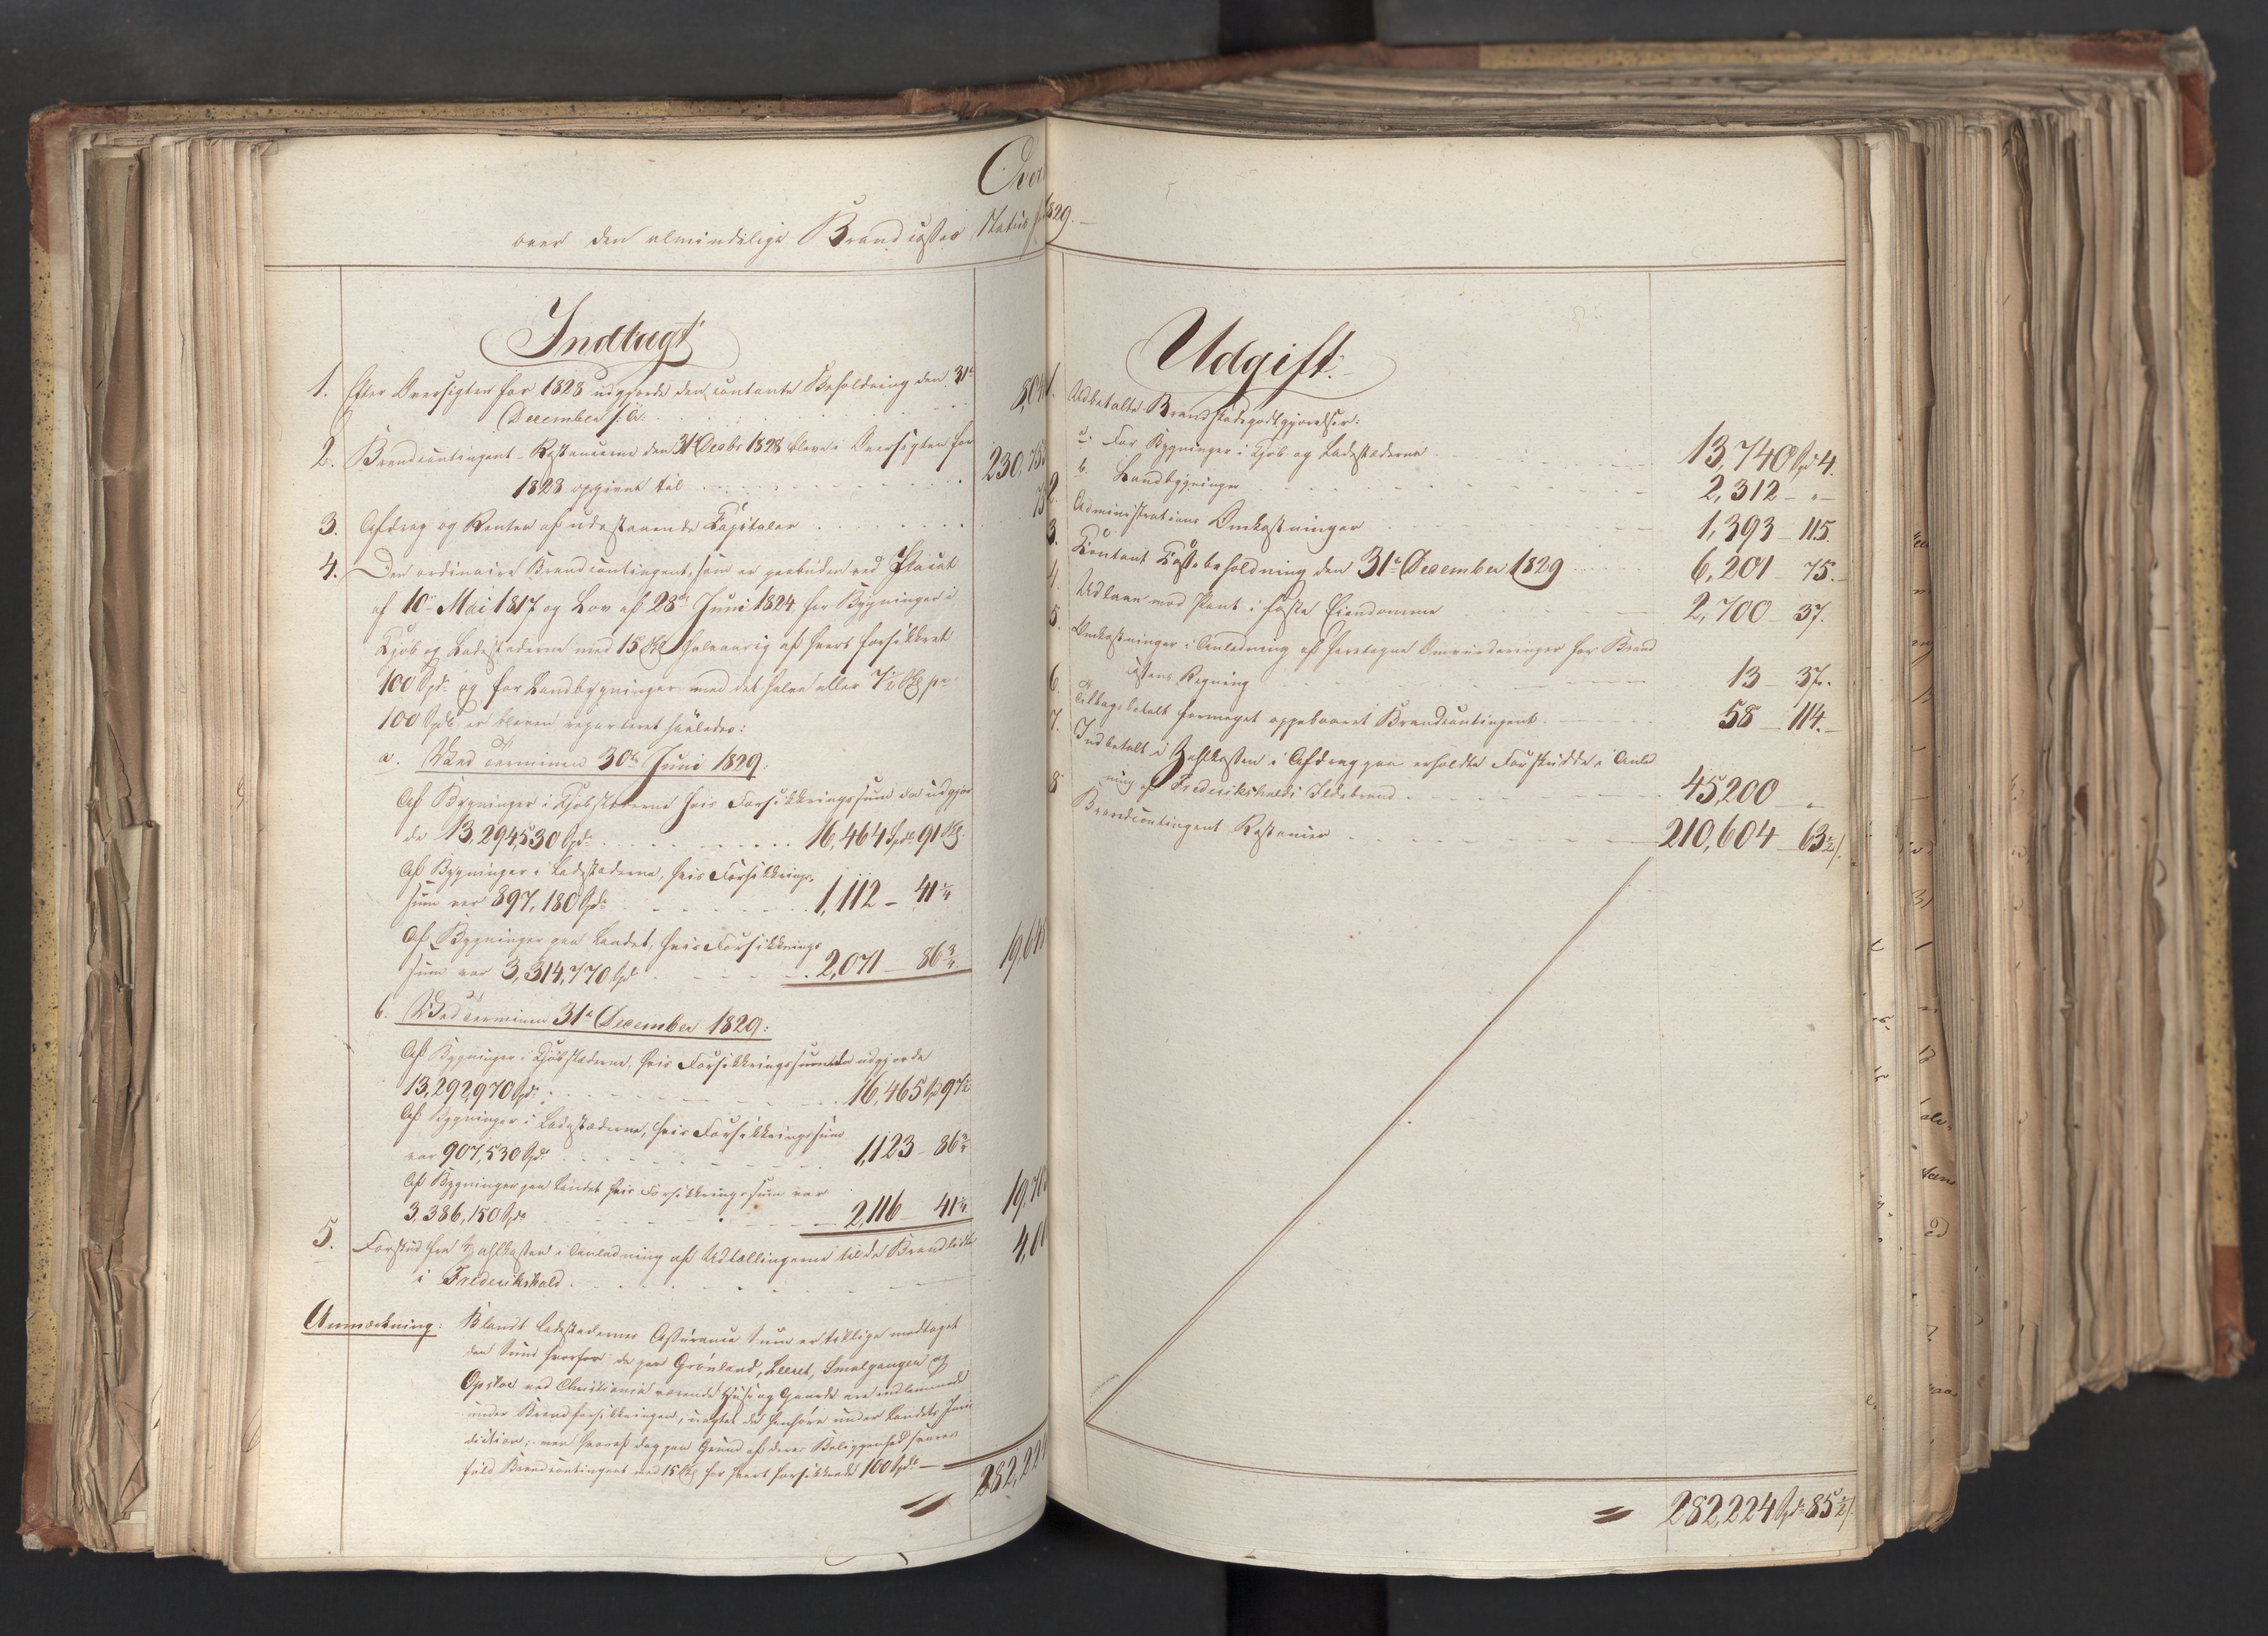 Over
over den almindelige Brandcasses Status for 1829.
Indtægt
1. Efter Oversigten for 1828 udgjorde den contante Beholdning den 31te
December s: A: 8,0
2. Brandcontingent-Restancerne den 31 Decbr 1828 bleve i Oversigten for
1828 opgivet til 230,73
3. Afdrag og Renter af udestaaende Capitaler 73
4. Den ordinaire Brandcontingent, som er paabuden ved Placat
af 10de Mai 1817 og Lov af 28de Juni 1824 for Bygninger i
Kjøb og Ladestæderne med 15 Sk halvaarig af hvert forsikkret
100 Spd: og for Landbygninger med det halve eller 7½ Sk pr:
100 Spd er bleven reparteret saaledes:
a. Ved Terminen 30te Juni 1829:
Af Bygninger i Kjøbstæderne hvis Forsikkringssum da udgjor
de 13,294,530 Spd: 16,464 Spd: 91 Sk
Af Bygninger i Ladestæderne, hvis Forsikkrings-
sum var 897,180 Spd: 1,112 - 41¼
Af Bygninger paa Landet, hvis Forsikkrings
sum var 3,314,770 Spd 2,071 - 86¾ 19,648
b. Ved Terminen 31te December 1829:
Af Bygninger i Kjøbstæderne, hvis Forsikkringssum da udgjorde
13,292,970 Spd: 16,465 Spd 97½
Af Bygninger i Ladestæderne, hvis Forsikkringssum
var 907,530 Spd: 1,123 - 86¾
Af Bygninger paa Landet hvis Forsikkringssum var
3,386,150 Spd 2,116 - 41¼ 19,70
5. Forskud fra Zahlkassen i Anledning af Udtællingerne til de Brandlidte
i Frederikshald 4,0
Anmærkning: Blandt Ladestædernes Assurance Sum er tillige medtaget
den Sum hvorfor de paa Grønland, Leeret, Smalgangen og
Opsloe ved Christiania værende Huse og Gaarde ere indlemmede
under Brandforsikkringen, uagtet de henhøre under Landets Juris
diction; men hvoraf dog paa Grund af deres Beliggenhed svares
fuld Brandcontingent med 15 Sk for hvert forsikkrede 100 Spd:
= 282,224
Udgift:
1. Udbetalte Brandskadegodtgjørelser:
a. For Bygninger i Kjøb og Ladestæderne 13,740 Spd 4.
b. Landbygninger 2,312 - " -
2. Administrations Omkostninger 1,393 - 115.
3. Contant Cassebeholdning den 31te December 1829 6,201 - 75.
4. Udlaan mod Pant i faste Eiendomme 2,700 - 37.
5. Omkostninger i Anledning af foretagne Omvurderinger for Brand
cassens Regning 13 - 37.
6. Tilbagebetalt formeget oppebaaret Brandcontingent 58 - 114.
7. Indbetalt i Zahlkassen i Afdrag paa erholdte Forskudde i Anled
ning af Frederikshalds Ildebrand 45,200 - "
8 Brandcontingent Restancer 210,604 - 63½
= 282,224 Spd: 85½